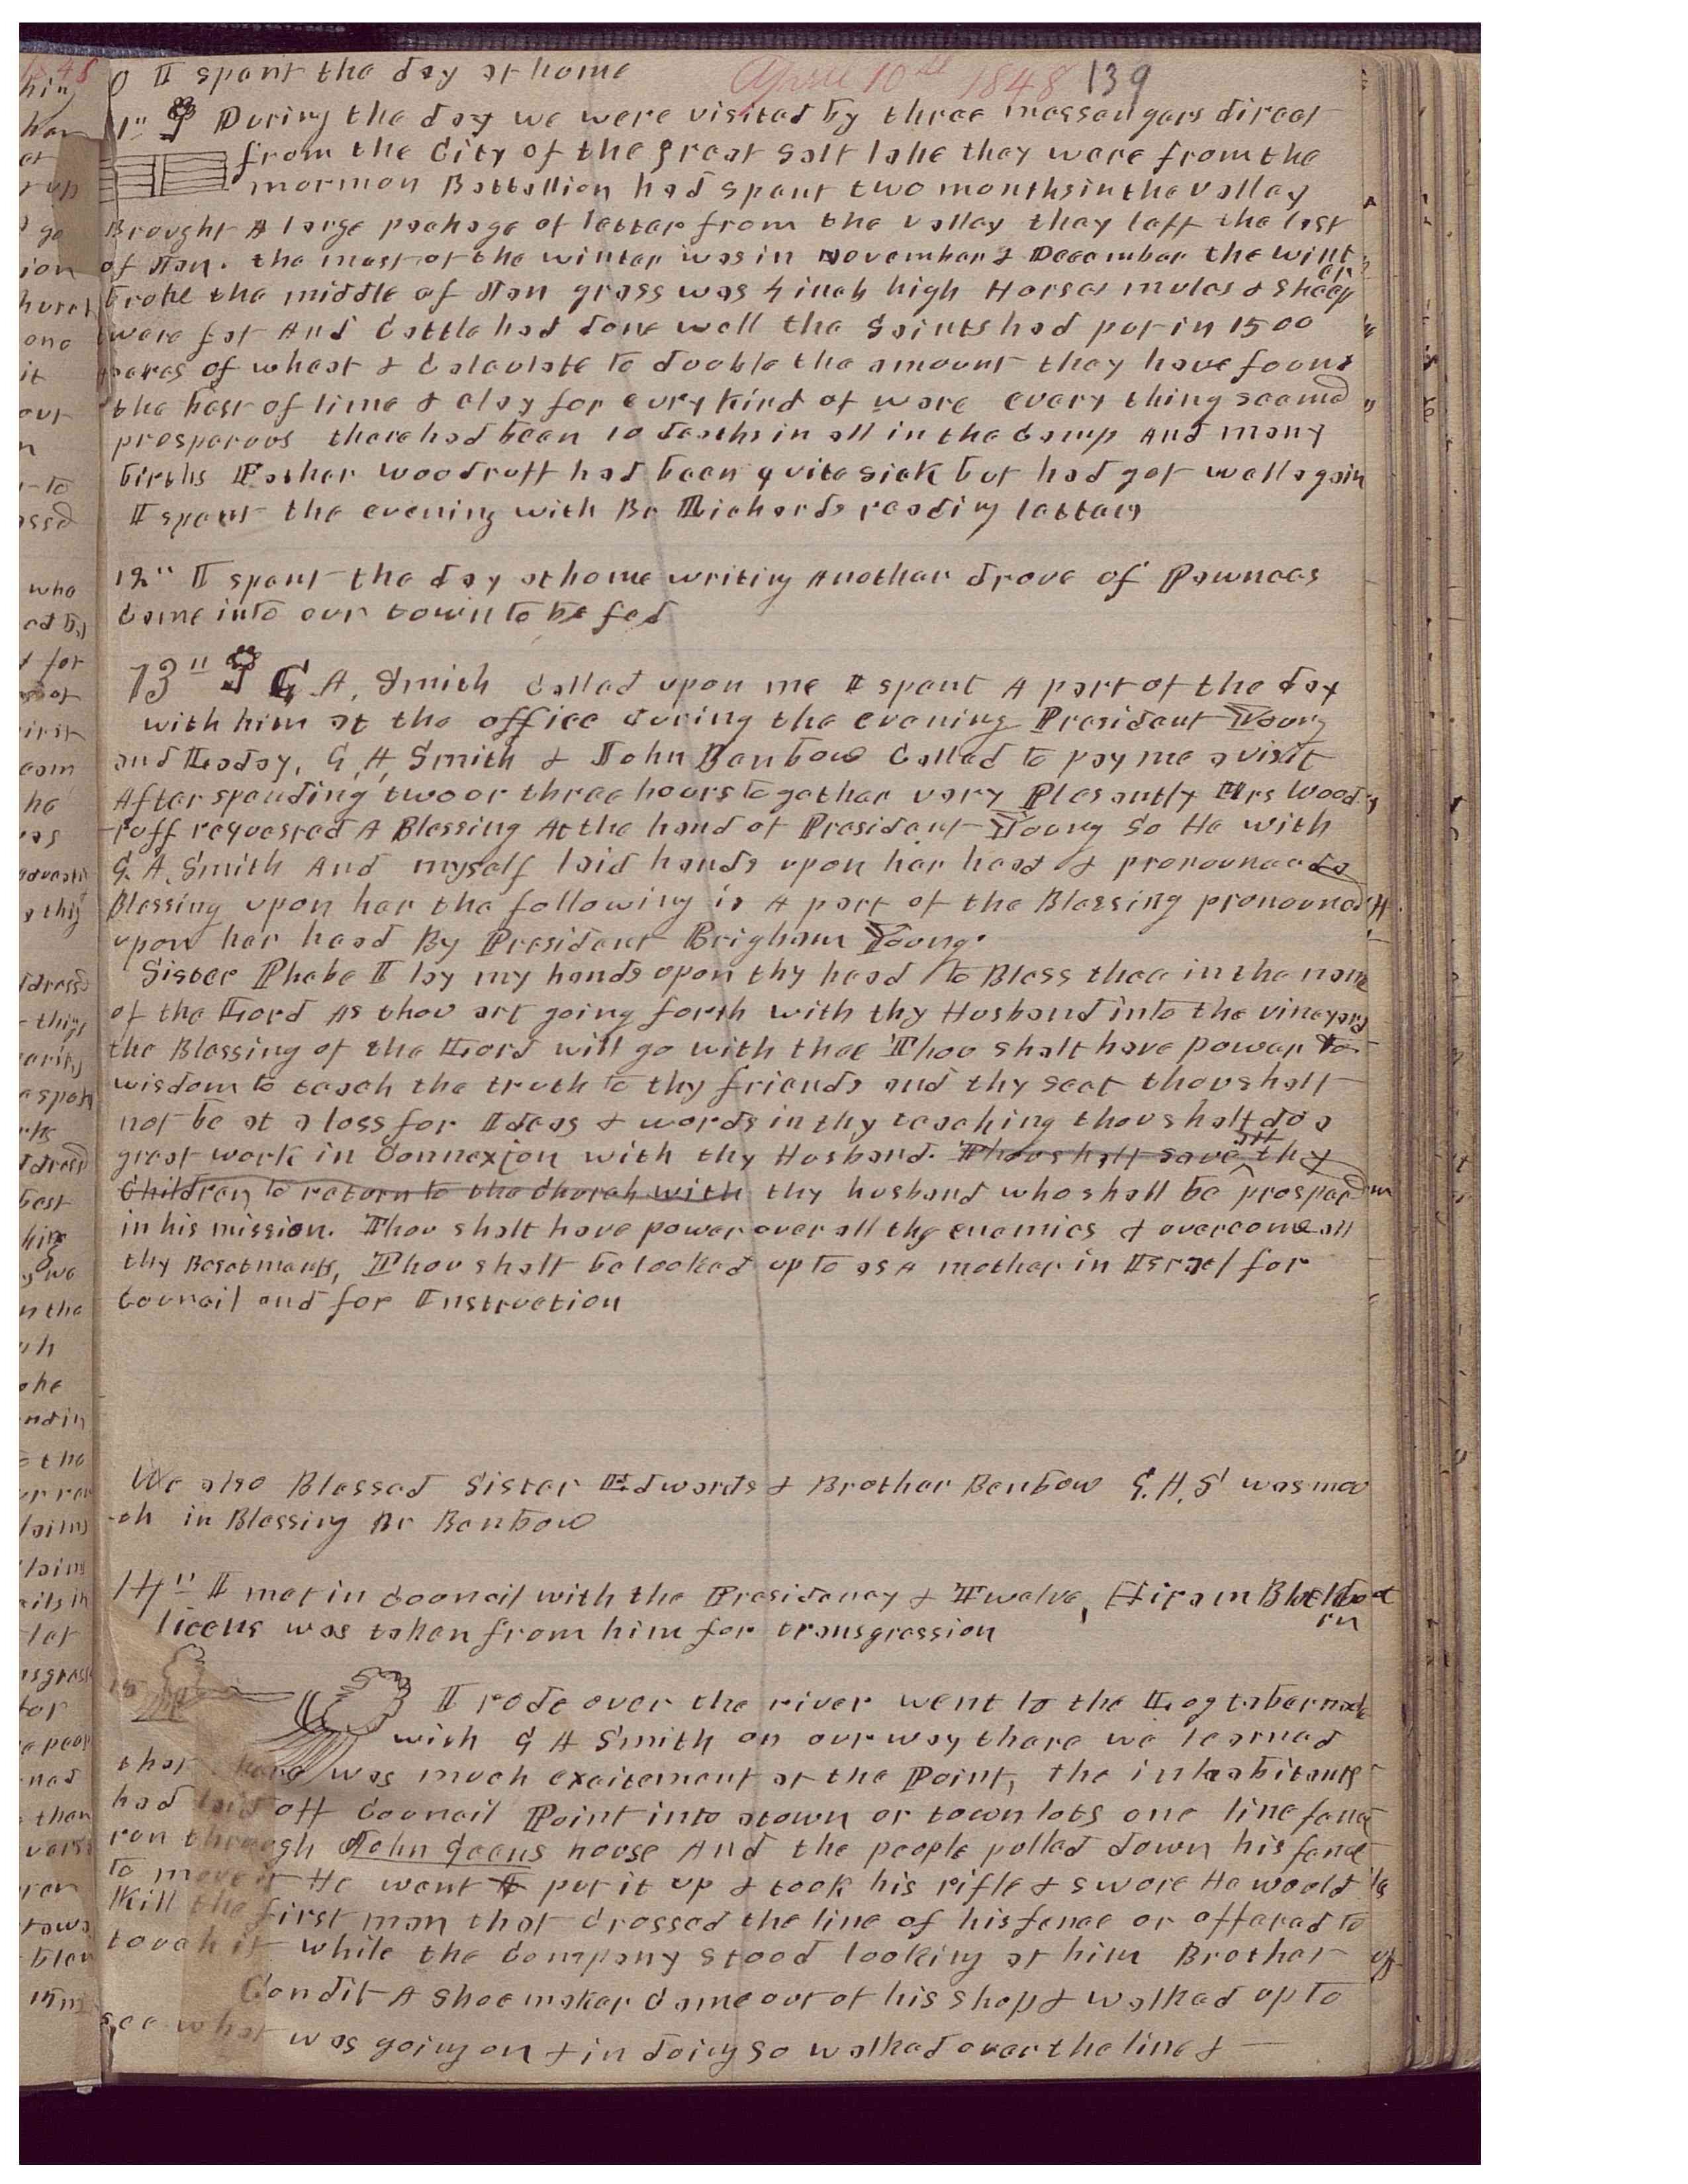 April 10th 1848 139
0 I spent the day at home
11" During the day we were visited by three messengers direct
from the City of the great Salt lake they were from the
mormon Battallion had spent two months in the valley
Brought A large package of letter from the valley they left the last
of Jan. the most of the winter was in November & December the wint
er
broke the middle of Jan grass was 4 inch high Horses mules & sheep
were fat And Cattle had done well the Saints had put in 1500
acres of wheat & Calculate to double the amount they have found
the best of lime & clay for evry kind of ware every thing seemed
prosperous there had been 10 deaths in all in the Camp And many
births Father Woodruff had been quite sick but had got well again
I spent the evening with Br Richards reading letters
12" I spent the day at home writing Another drove of Pawnees
Came into our town to be fed
13" G. A. Smith Called upon me I spent A part of the day
with him at the office during the evening President Young
and Leday, G. A. Smith & John Benbow Called to pay me a visit
After spending two or three hours together very Plesantly Mrs Wood
ruff requested A Blessing At the hand of President Young So He with
G. A. Smith And myself laid hands upon her head & pronounced a
Blessing upon her the following is A part of the Blessing pronounced
upon her head By President Brigham Young.
Sister Phebe I lay my hands upon thy head to Bless thee in the name
of the Lord As thou art going forth with thy Husband into the vineyard
the Blessing of the Lord will go with thee Thou shalt have power to
wisdom to teach the truth to thy friends and thy seat thou shalt
not be at a loss for Ideas & words in thy teaching thou shalt do a
great work in Connexion with thy Husband. Thou shalt save all thy
Children to return to the church with thy husband who shall be prospered
in his mission. Thou shalt have power over all thy enemies & overcome all
thy Besetments, Thou shalt be looked up to as A mother in Israel for
Council and for Instruction
We also Blessed Sister Edwards & Brother Benbow G. A. S was mou
-th in Blessing Br Benbow
14" I met in Council with the Presidency & Twelve, Hiram
licens was taken from him for transgression
15 I rode over the river went to the Log tabernacle
with G A Smith on our way there we learned
that there was much excitement at the Point, the inhabitants
had laid off Council Point into a town or town lots one line fence
ran through John Geens house And the people pulled down his fence
to move it He went & put it up & took his rifle & swore He would
Kill the first man that Crossed the line of his fence or offered to
touch it while the Company stood looking at him Brother
Condit A shoemaker Came out of his shop & walked up to
see what was going on & in doing so walked over the line &